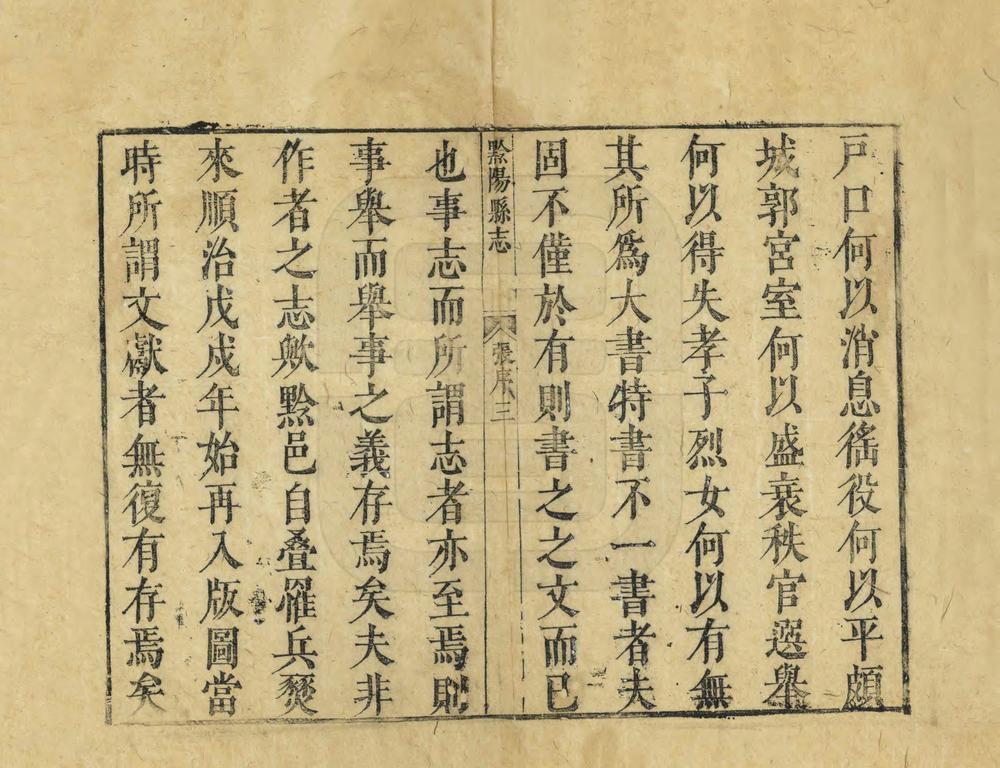 戸口何以消息徭役何以平頗
城郭宮室何以盛衰秩官選舉
何以得失孝子烈女何以有無
其所爲大書特書不一書者夫
固不僅於有則書之之文而已
黔陽縣志 張序 三
也事志而所謂志者亦至焉則
事舉而舉事之義存焉矣夫非
作者之志歟黔邑自叠罹兵燹
來順治戊戍年始再入版圖當
時所謂文獻者無復有存焉矣